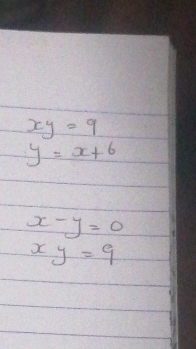 xy = 9
y = x+6
x-y=0
xy = 9